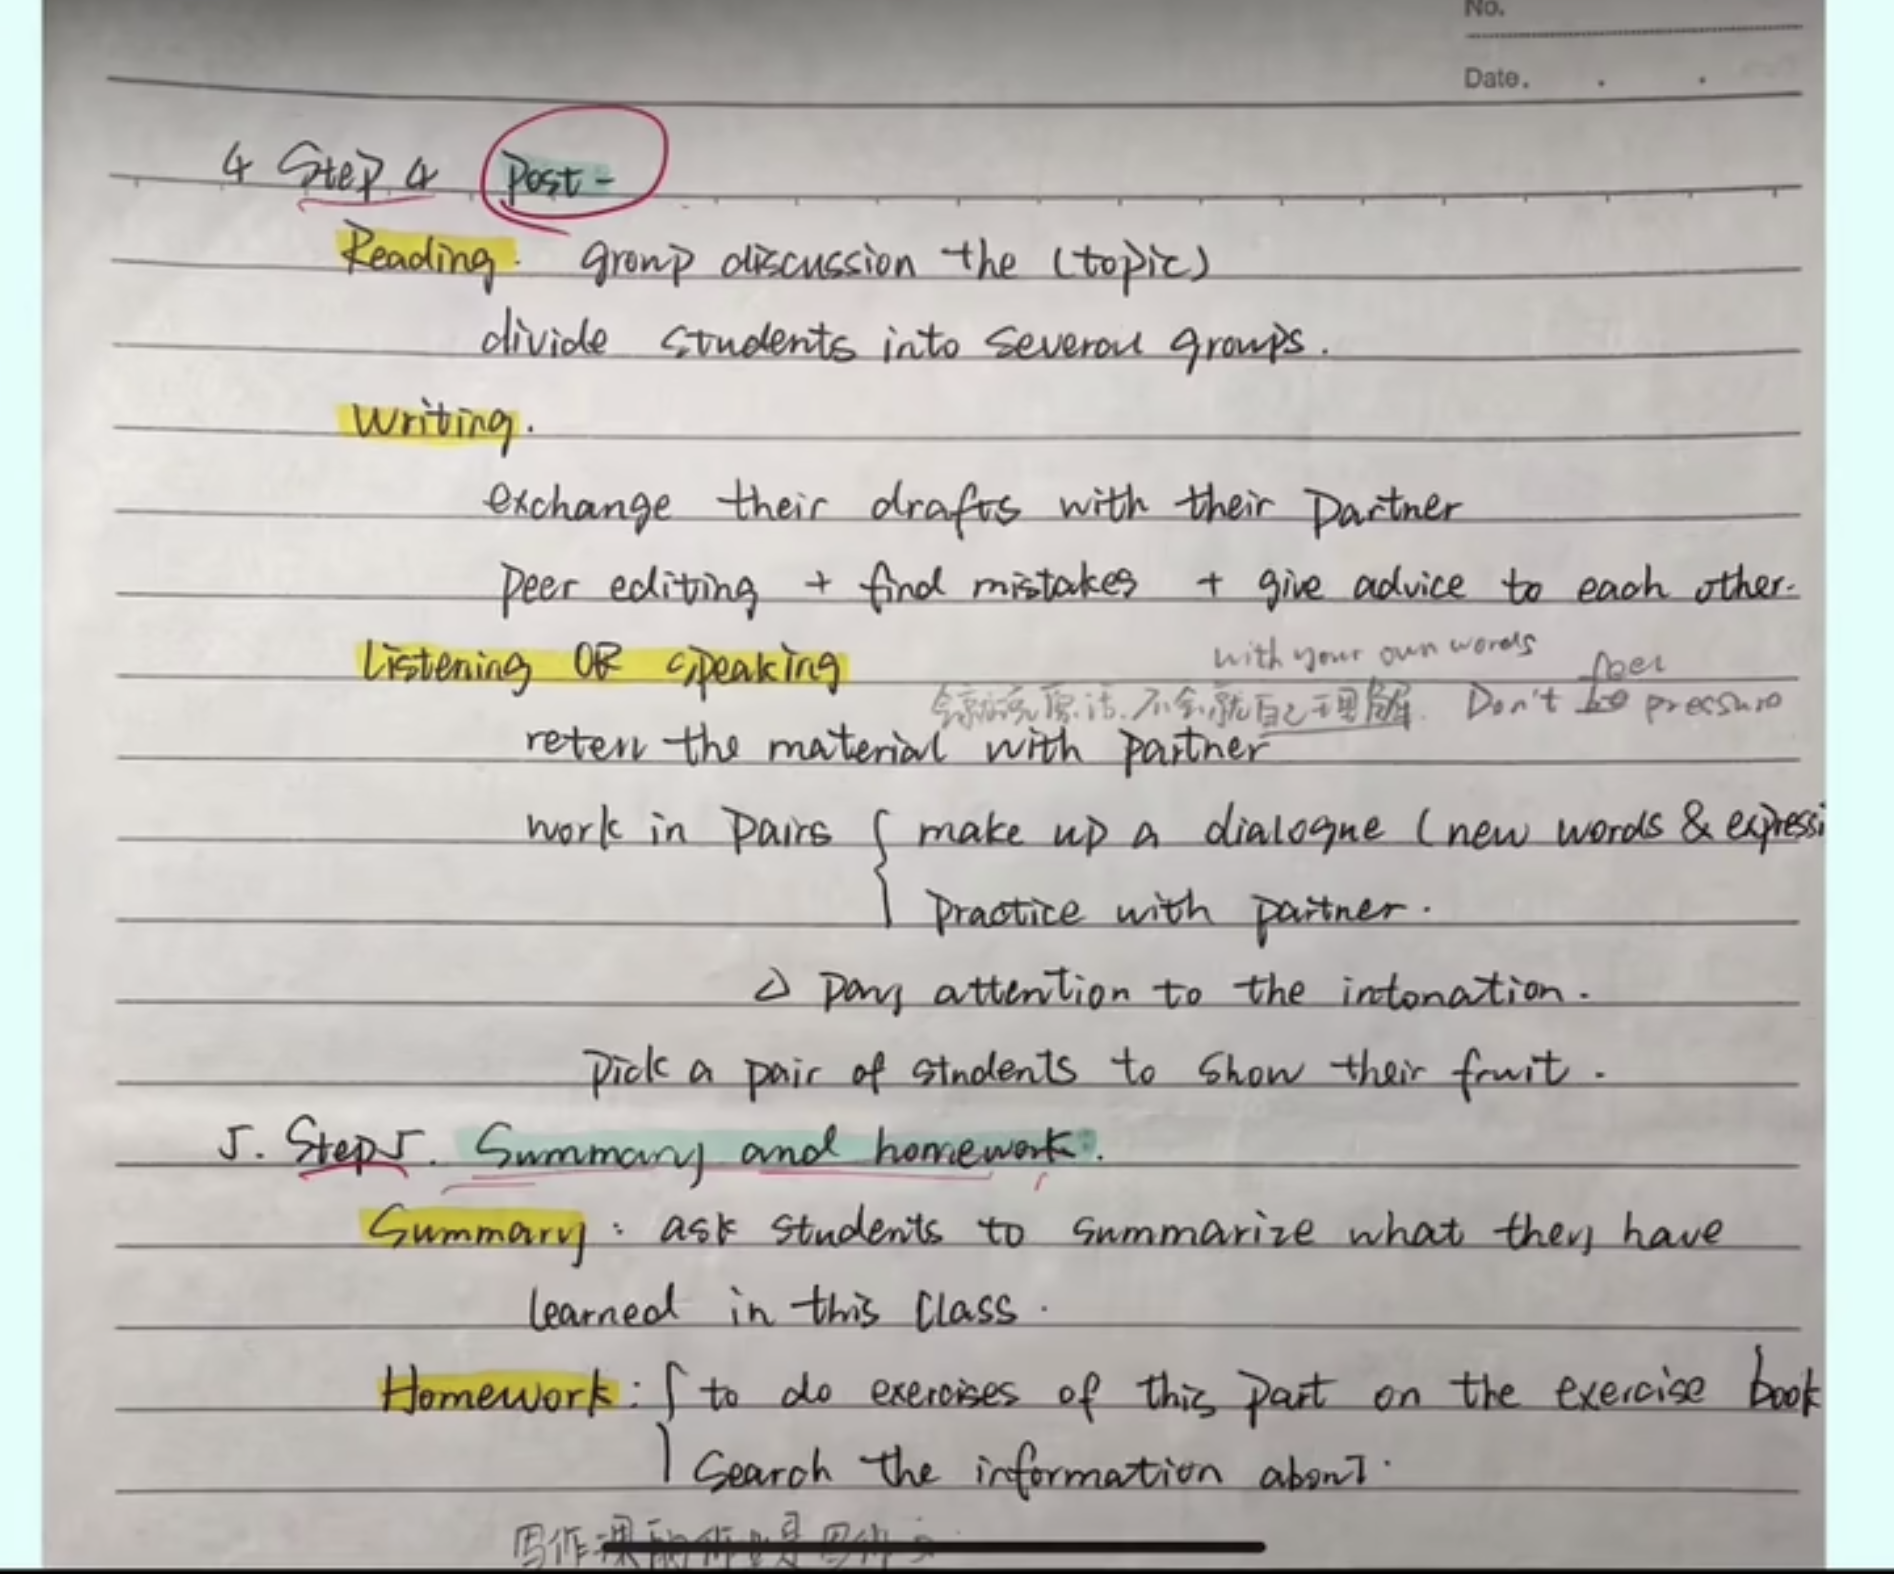 No.
Date.
4 Step 4 Post-
Reading. group discussion the (topic)
divide students into several groups.
Writing.
exchange their drafts with their partner
peer editing + find mistakes + give advice to each other.
Listening OR speaking
with your own words
feel
原话.不会就自己理解. Don't be pressure
retell the material with partner
work in pairs { make up a dialogue (new words & expressi
practice with partner.
△ pay attention to the intonation.
pick a pair of students to show their fruit.
5. Step5. Summary and homework.
Summary: ask students to summarize what they have
learned in this class.
Homework: { to do exercises of this part on the exercise book
search the information about.
写作课的作业是写作文